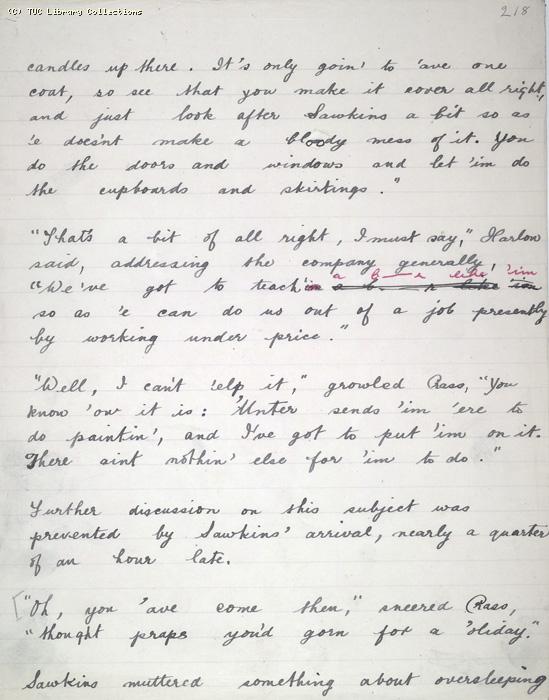 (C) TUC Library Collections
218
candles up there. It's only goin' to 'ave one
coat, so see that you make it cover all right,
and just look after Sawkins a bit so as
'e doesn't make a bloody mess of it. You
do the doors and windows and let 'im do
the cupboards and skirtings."
"That's a bit of all right, I must say," Harlow
said, addressing the company generally,
a b——r like 'im
"We've got to teach 'im a b——r like 'im
so as 'e can do us out of a job presently
by working under price."
"Well, I can't 'elp it," growled Crass, "You
know 'ow it is: 'Unter sends 'im 'ere to
do paintin', and I've got to put 'im on it.
There aint nothin' else for 'im to do."
Further discussion on this subject was
prevented by Sawkins' arrival, nearly a quarter
of an hour late.
"Oh, you 'ave come then," sneered Crass,
"thought praps you'd gorn for a 'oliday."
Sawkins muttered something about oversleeping